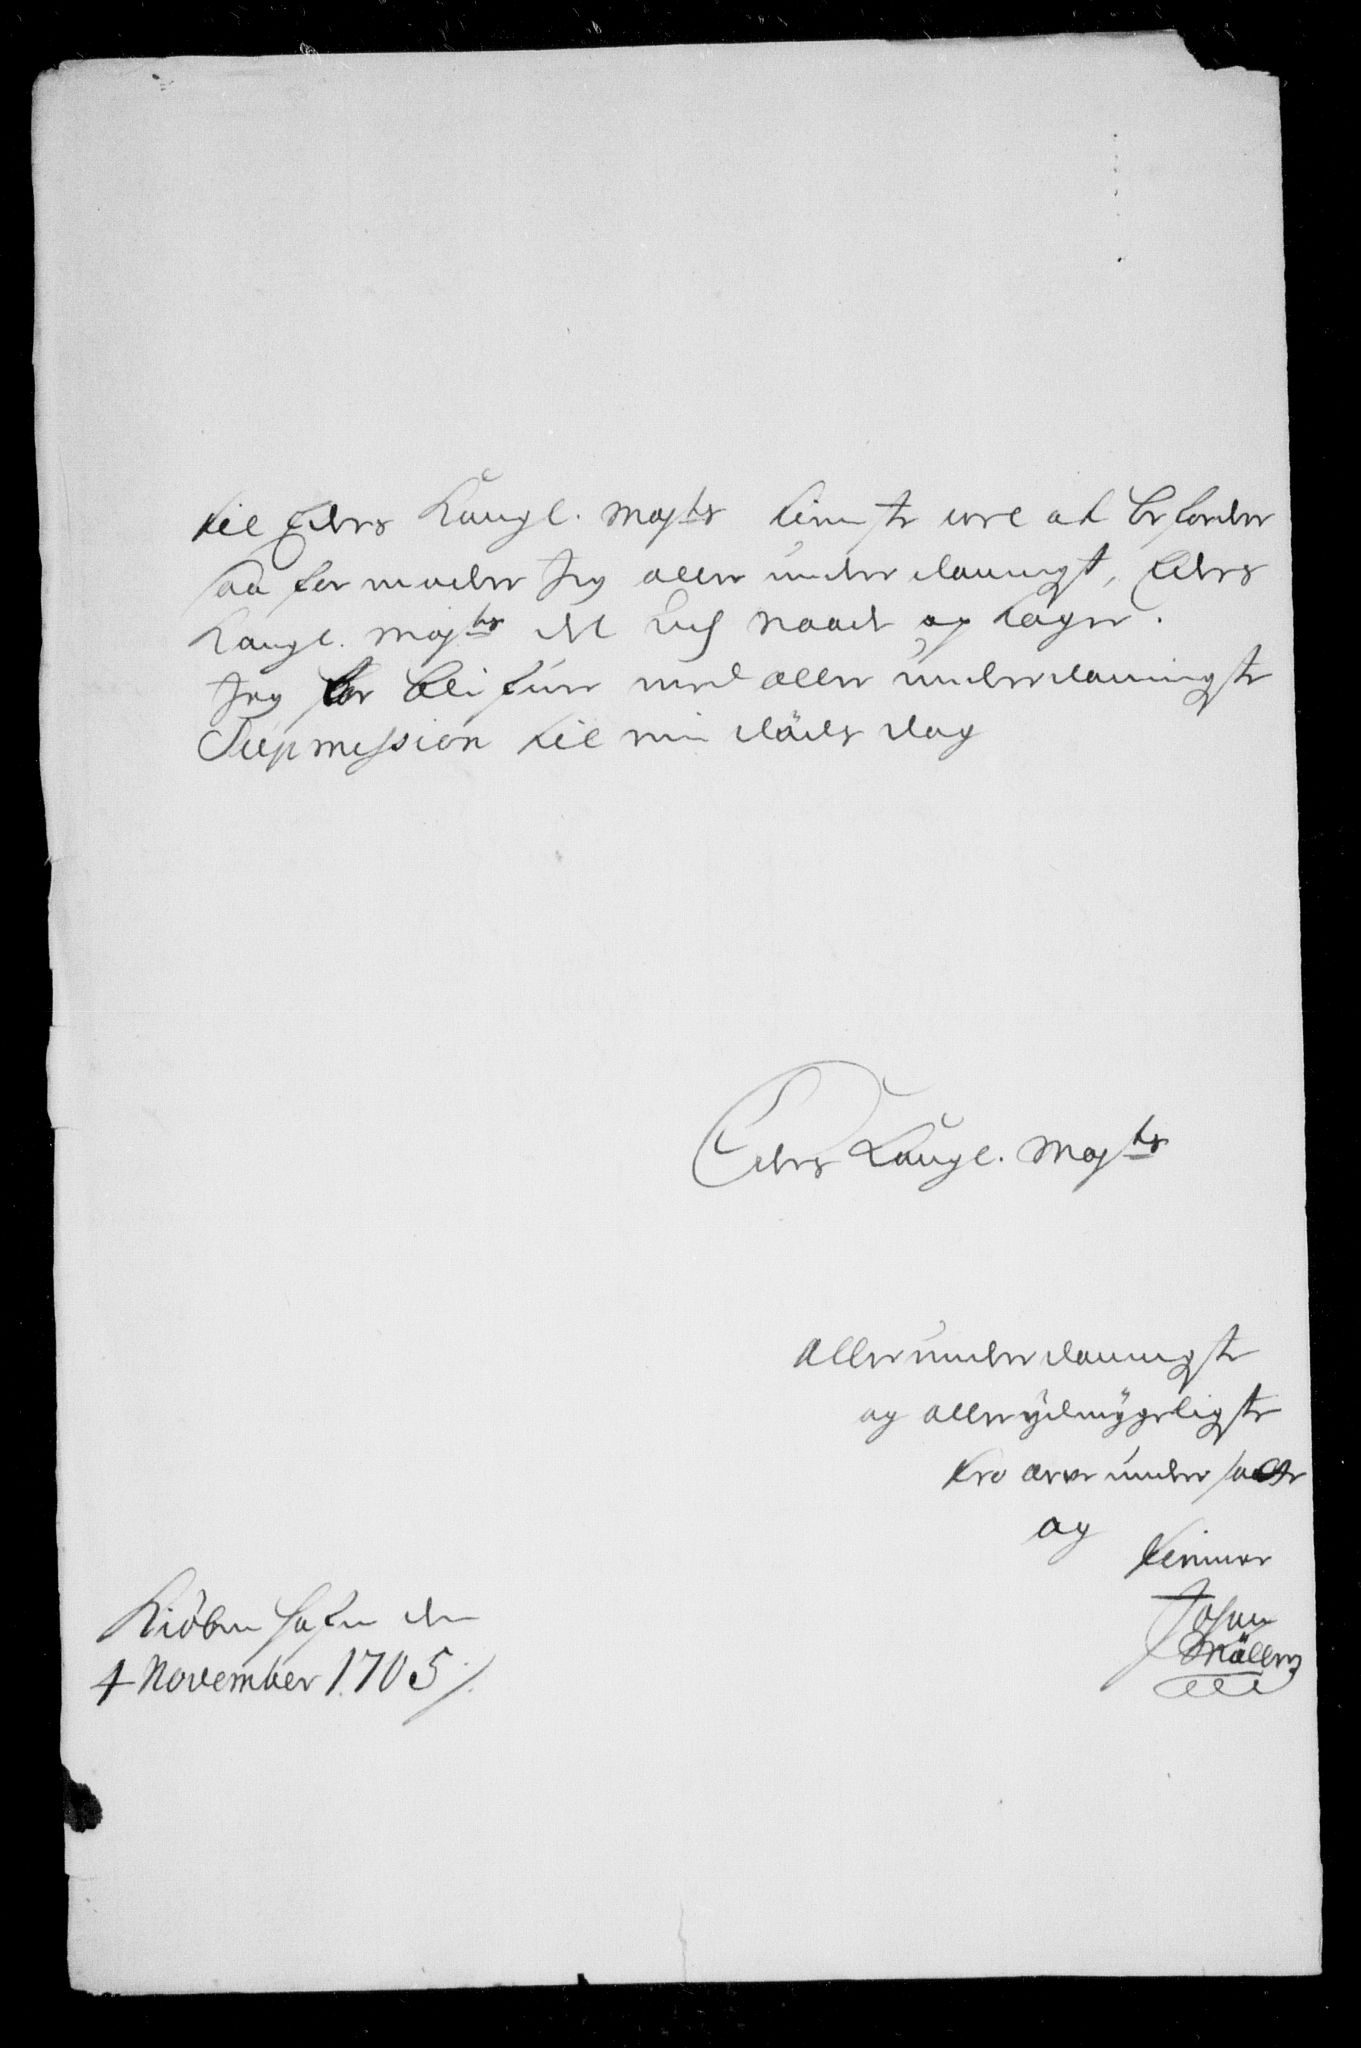 til Eders Kongl. Majts tieniste vel at befordre
saa formoder Jeg aller underdanigst, Eders
Kongl. Majts det udj Naade optager.
Jeg for blifuer med aller underdanigste
Supmission til min döds dag
Eders Kongl. Majts
Allerunderdanigste
og allerydmygeligste
tro arve undersaatte
og
tienner
Johan
Möller
Kiöbenhafn den
4 November 1705